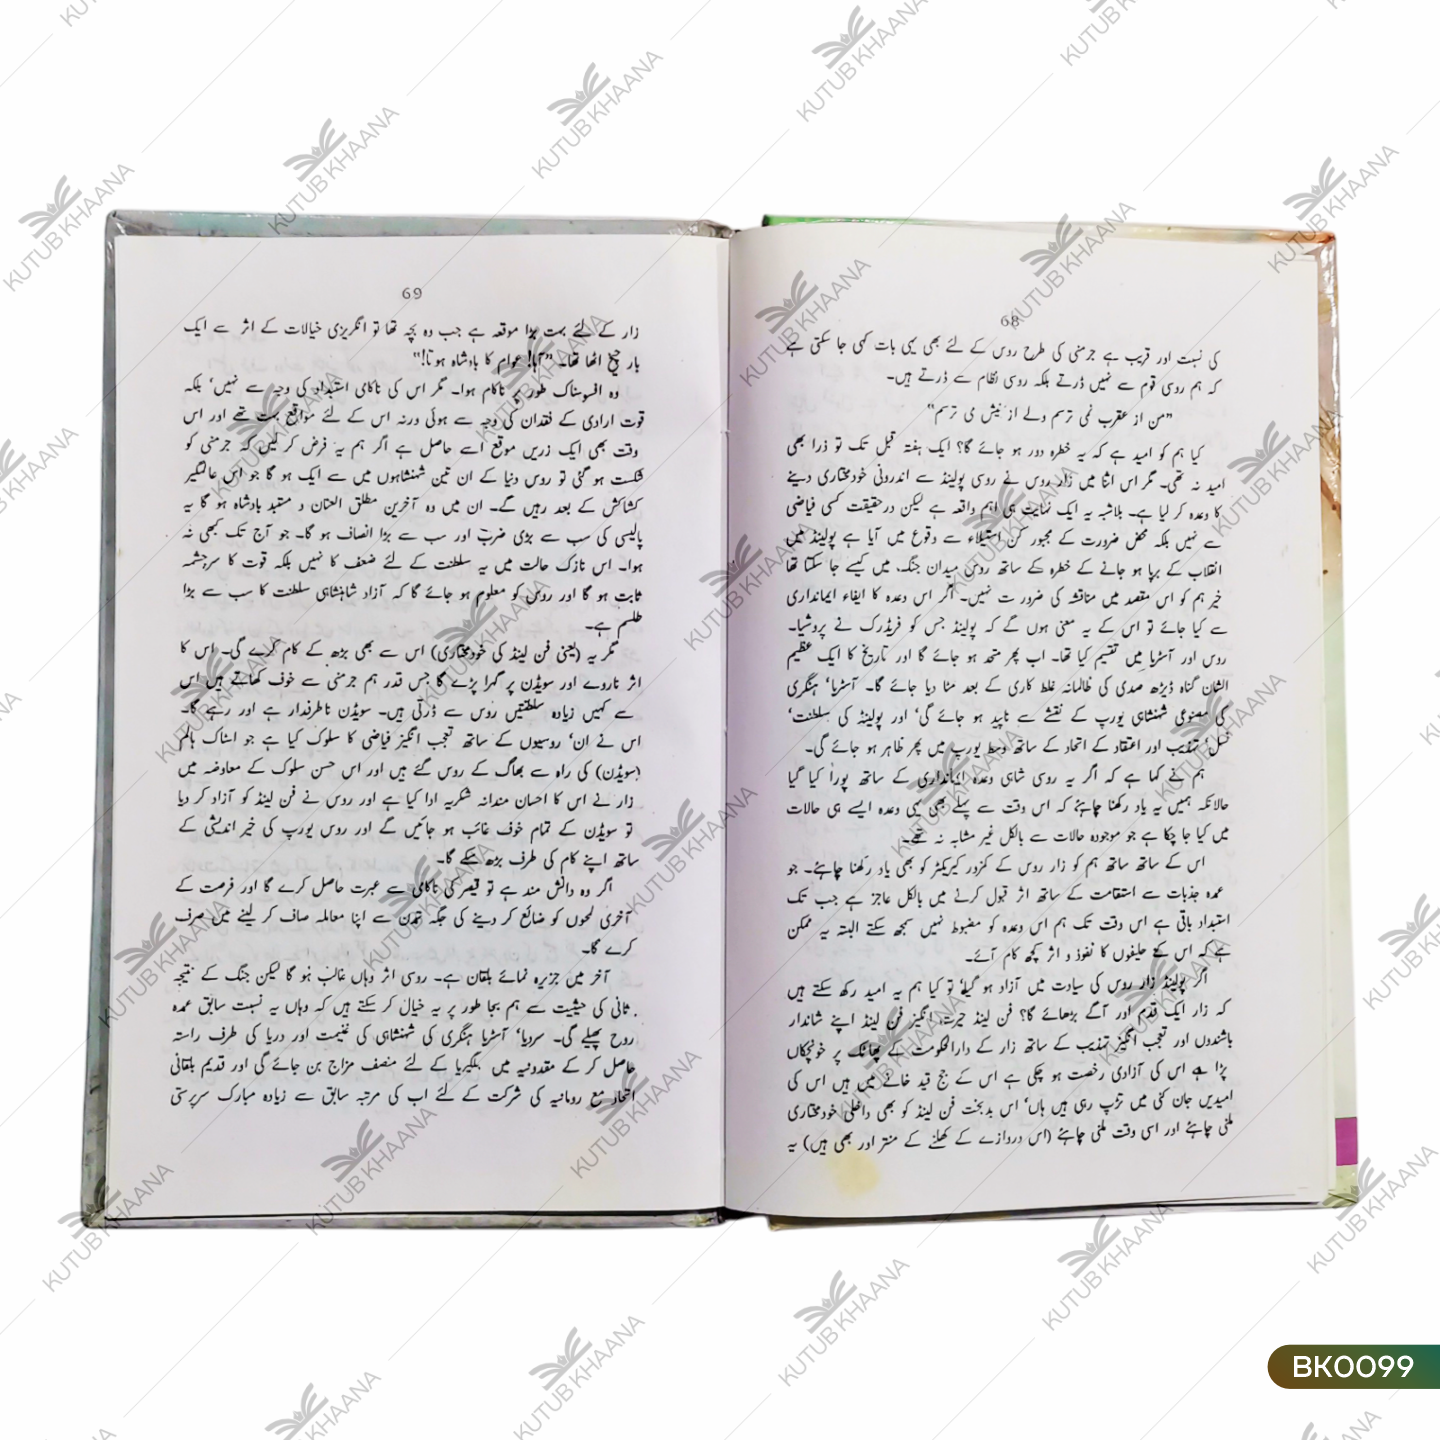 68
کی نسبت اور قریب ہے جرمنی کی طرح روس کے لئے بھی یہی بات کہی جا سکتی ہے
کہ ہم روسی قوم سے نہیں ڈرتے بلکہ روسی نظام سے ڈرتے ہیں۔
"من از عقرب نمی ترسم ولے از نیش می ترسم"
کیا ہم کو امید ہے کہ یہ خطرہ دور ہو جائے گا؟ ایک ہفتہ قبل تک تو ذرا بھی
امید نہ تھی۔ مگر اس اثنا میں زار روس نے روسی پولینڈ سے اندرونی خودمختاری دینے
کا وعدہ کر لیا ہے۔ بلاشبہ یہ ایک نہایت ہی اہم واقعہ ہے لیکن درحقیقت کسی فیاضی
سے نہیں بلکہ محض ضرورت کے مجبور کن استیلاء سے وقوع میں آیا ہے پولینڈ میں
انقلاب کے برپا ہو جانے کے خطرہ کے ساتھ روس میدان جنگ، میں کیسے جا سکتا تھا
خیر ہم کو اس مقصد میں مناقشہ کی ضرورت نہیں۔ اگر اس وعدہ کا ایفاء ایمانداری
سے کیا جائے تو اس کے یہ معنی ہوں گے کہ پولینڈ جس کو فریڈرک نے پروشیا۔
روس اور آسٹریا میں تقسیم کیا تھا۔ اب پھر متحد ہو جائے گا اور تاریخ کا ایک عظیم
الشان گناہ ڈیڑھ صدی کی ظالمانہ غلط کاری کے بعد مٹا دیا جائے گا۔ آسٹریا' ہنگری
کی مصنوعی شہنشاہی یورپ کے نقشے سے ناپید ہو جائے گی' اور پولینڈ کی سلطنت'
نسل' تہذیب اور اعتقاد کے اتحاد کے ساتھ وسط یورپ میں پھر ظاہر ہو جائے گی۔
ہم نے کہا ہے کہ اگر یہ روسی شاہی وعدہ ایمانداری کے ساتھ پورا کیا گیا
حالانکہ ہمیں یہ یاد رکھنا چاہئے کہ اس وقت سے پہلے بھی یہی وعدہ ایسے ہی حالات
میں کیا جا چکا ہے جو موجودہ حالات سے بالکل غیر مشابہ نہ تھے۔
اس کے ساتھ ساتھ ہم کو زار روس کے کمزور کیریکٹر کو بھی یاد رکھنا چاہئے۔ جو
عمدہ جذبات سے استقامت کے ساتھ اثر قبول کرنے میں بالکل عاجز ہے جب تک
استبداد باقی ہے اس وقت تک ہم اس وعدہ کو مضبوط نہیں سمجھ سکتے البتہ یہ ممکن
ہے کہ اس کے حلیفوں کا نفوذ و اثر کچھ کام آئے۔
اگر پولینڈ زار روس کی سیادت میں آزاد ہو گیا' تو کیا ہم یہ امید رکھ سکتے ہیں
کہ زار ایک قدم اور آگے بڑھائے گا؟ فن لینڈ حیرت انگیز فن لینڈ اپنے شاندار
باشندوں اور تعجب انگیز تہذیب کے ساتھ زار کے دارالحکومت کے پھاٹک پر خونچکاں
پڑا ہے اس کی آزادی رخصت ہو چکی ہے اس کے جج قید خانے میں ہیں اس کی
امیدیں جان کنی میں تڑپ رہی ہیں ہاں' اس بدبخت فن لینڈ کو بھی داخلی خودمختاری
ملنی چاہئے اور اسی وقت ملنی چاہئے (اس دروازے کے کھلنے کے منتر اور بھی ہیں) یہ
69
زار کے لئے بہت بڑا موقعہ ہے جب وہ بچہ تھا تو انگریزی خیالات کے اثر سے ایک
بار چیخ اٹھا تھا۔ "آہا! عوام کا بادشاہ ہوتا!"
وہ افسوسناک طور پر ناکام ہوا۔ مگر اس کی ناکامی استبداد کی وجہ سے نہیں' بلکہ
قوت ارادی کے فقدان کی وجہ سے ہوئی ورنہ اس کے لئے مواقع بہت تھے اور اس
وقت بھی ایک زریں موقع اسے حاصل ہے اگر ہم یہ فرض کر لیں کہ جرمنی کو
شکست ہو گئی تو روس دنیا کے ان تین شہنشاہوں میں سے ایک ہو گا جو اس عالمگیر
کشاکش کے بعد رہیں گے۔ ان میں وہ آخرین مطلق العنان و مستبد بادشاہ ہو گا یہ
پالیسی کی سب سے بڑی ضرب اور سب سے بڑا انصاف ہو گا۔ جو آج تک کبھی نہ
ہوا۔ اس نازک حالت میں یہ سلطنت کے لئے ضعف کا نہیں بلکہ قوت کا سرچشمہ
ثابت ہو گا اور روس کو معلوم ہو جائے گا کہ آزاد شاہنشاہی سلطنت کا سب سے بڑا
طلسم ہے۔
مگر یہ (یعنی فن لینڈ کی خودمختاری) اس سے بھی بڑھ کے کام کرے گی۔ اس کا
اثر ناروے اور سویڈن پر گہرا پڑے گا جس قدر ہم جرمنی سے خوف کھاتے ہیں اس
سے کہیں زیادہ سلطنتیں روس سے ڈرتی ہیں۔ سویڈن ناطرفدار ہے اور رہے گا۔
اس نے ان' روسیوں کے ساتھ تعجب انگیز فیاضی کا سلوک کیا ہے جو اسٹاک ہالم
(سویڈن) کی راہ سے بھاگ کے روس گئے ہیں اور اس حسن سلوک کے معاوضہ میں
زار نے اس کا احسان مندانہ شکریہ ادا کیا ہے اور روس نے فن لینڈ کو آزاد کر دیا
تو سویڈن کے تمام خوف غائب ہو جائیں گے اور روس یورپ کی خیر اندیشی کے
ساتھ اپنے کام کی طرف بڑھ سکے گا۔
اگر وہ دانش مند ہے تو قیصر کی ناکامی سے عبرت حاصل کرے گا اور فرصت کے
آخری لمحوں کو ضائع کر دینے کی جگہ تمدن سے اپنا معاملہ صاف کر لینے میں صرف
کرے گا۔
آخر میں جزیرہ نمائے بلقان ہے۔ روسی اثر وہاں غالب ہو گا لیکن جنگ کے نتیجہ
ثانی کی حیثیت سے ہم بجا طور پر یہ خیال کر سکتے ہیں کہ وہاں یہ نسبت سابق عمدہ
روح پھیلے گی۔ سرویا' آسٹریا ہنگری کی شہنشاہی کی غنیمت اور دریا کی طرف راستہ
حاصل کر کے مقدونیہ میں بلگیریا کے لئے منصف مزاج بن جائے گی اور قدیم بلقانی
اتحاد مع رومانیہ کی شرکت کے لئے اب کی مرتبہ سابق سے زیادہ مبارک سرپرستی
KUTUB KHAANA
BK0099